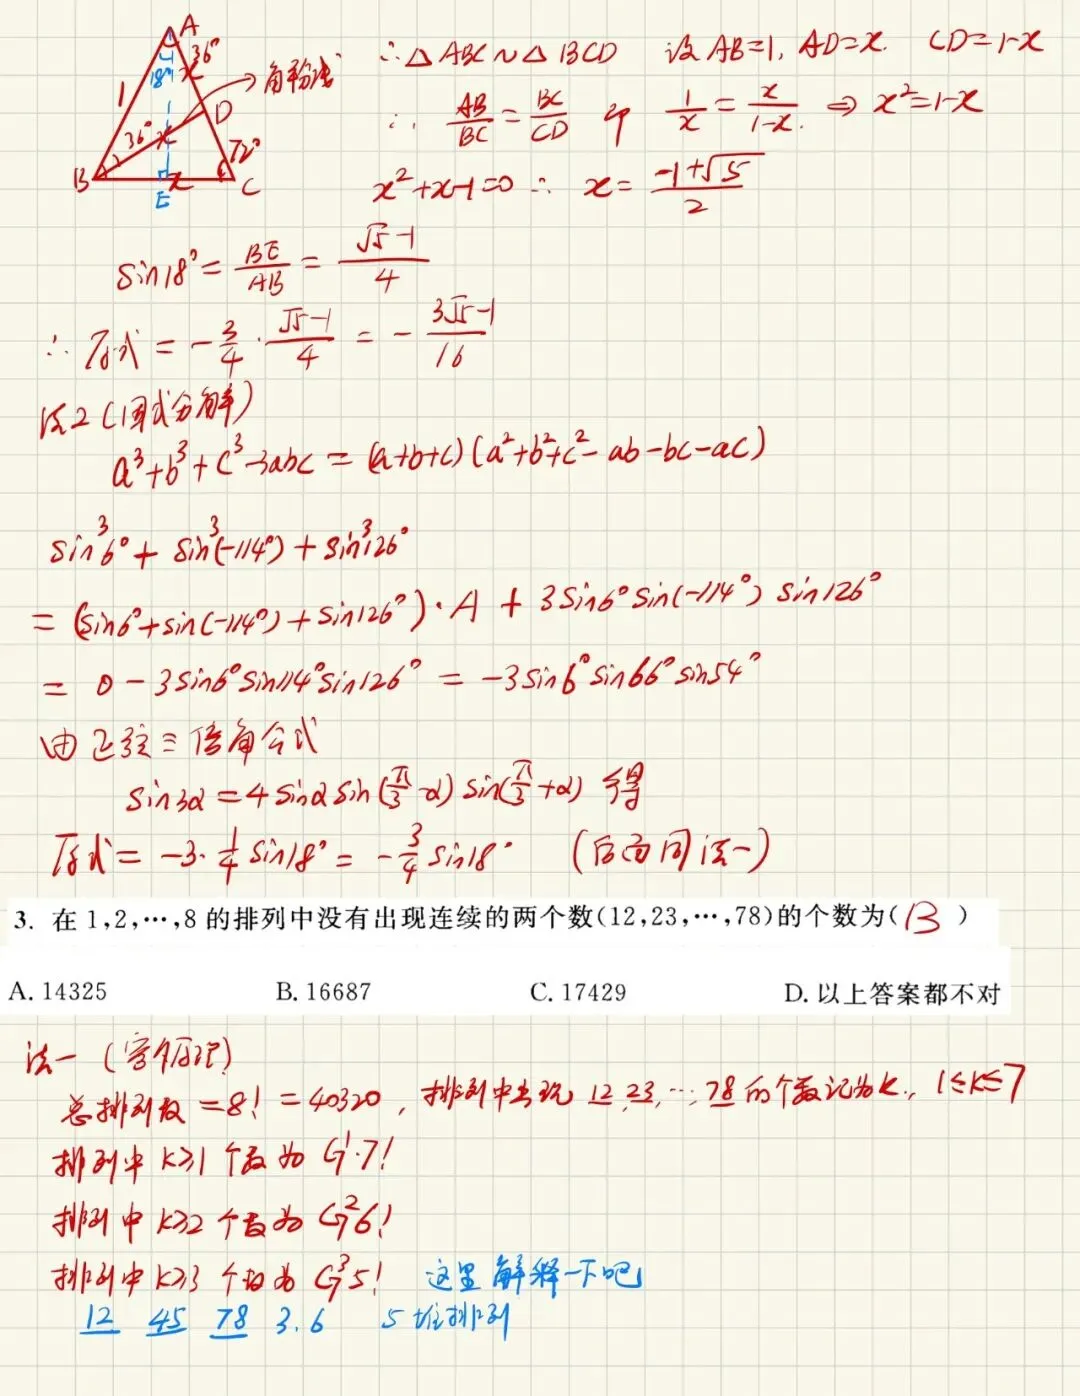 A
36°
18°
x
1
角平分线
D
36°
x
72°
B
x
C
E
∴△ABC∽△BCD 设AB=1, AD=x. CD=1-x
∴ AB/BC = BC/CD 即 1/x = x/(1-x) ⇒ x²=1-x
x²+x-1=0 ∴ x= (-1+√5)/2
sin18°= BE/AB = (√5-1)/4
∴ 原式 = -3/4 · (√5-1)/4 = - (3√5-1)/16
法2(因式分解)
a³+b³+c³-3abc = (a+b+c)(a²+b²+c²-ab-bc-ac)
sin³6°+ sin³(-114°) + sin³126°
= (sin6°+sin(-114°)+sin126°)·A + 3sin6°sin(-114°) sin126°
= 0-3sin6°sin114°sin126° = -3sin6°sin66°sin54°
由正弦三倍角公式
sin3α=4sinαsin(π/3-α) sin(π/3+α) 得
原式= -3·1/4 sin18°= -3/4 sin18° (后面同法一)
3. 在1,2,⋯,8的排列中没有出现连续的两个数(12,23,⋯,78)的个数为(B)
A. 14325 B. 16687 C. 17429 D. 以上答案都不对
法一 (容斥原理)
总排列数=8!=40320, 排列中出现 12,23,⋯,78的个数记为k, 1≤k≤7
排列中 k≥1 个数为 C₇¹·7!
排列中 k≥2 个数为 C₇²6!
排列中 k≥3 个数为 C₇³5! 这里解释一下吧
12 45 78 3.6 5堆排列